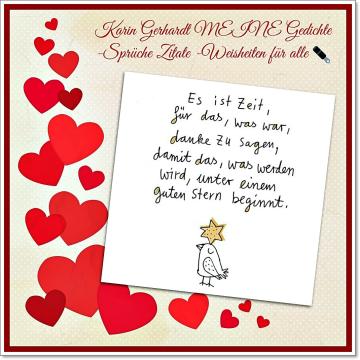 Karin Gerhardt MEINE Gedichte
-Sprüche Zitate -Weisheiten für alle
Es ist Zeit,
für das, was war,
danke zu sagen,
damit das, was werden
wird, unter einem
guten Stern beginnt.